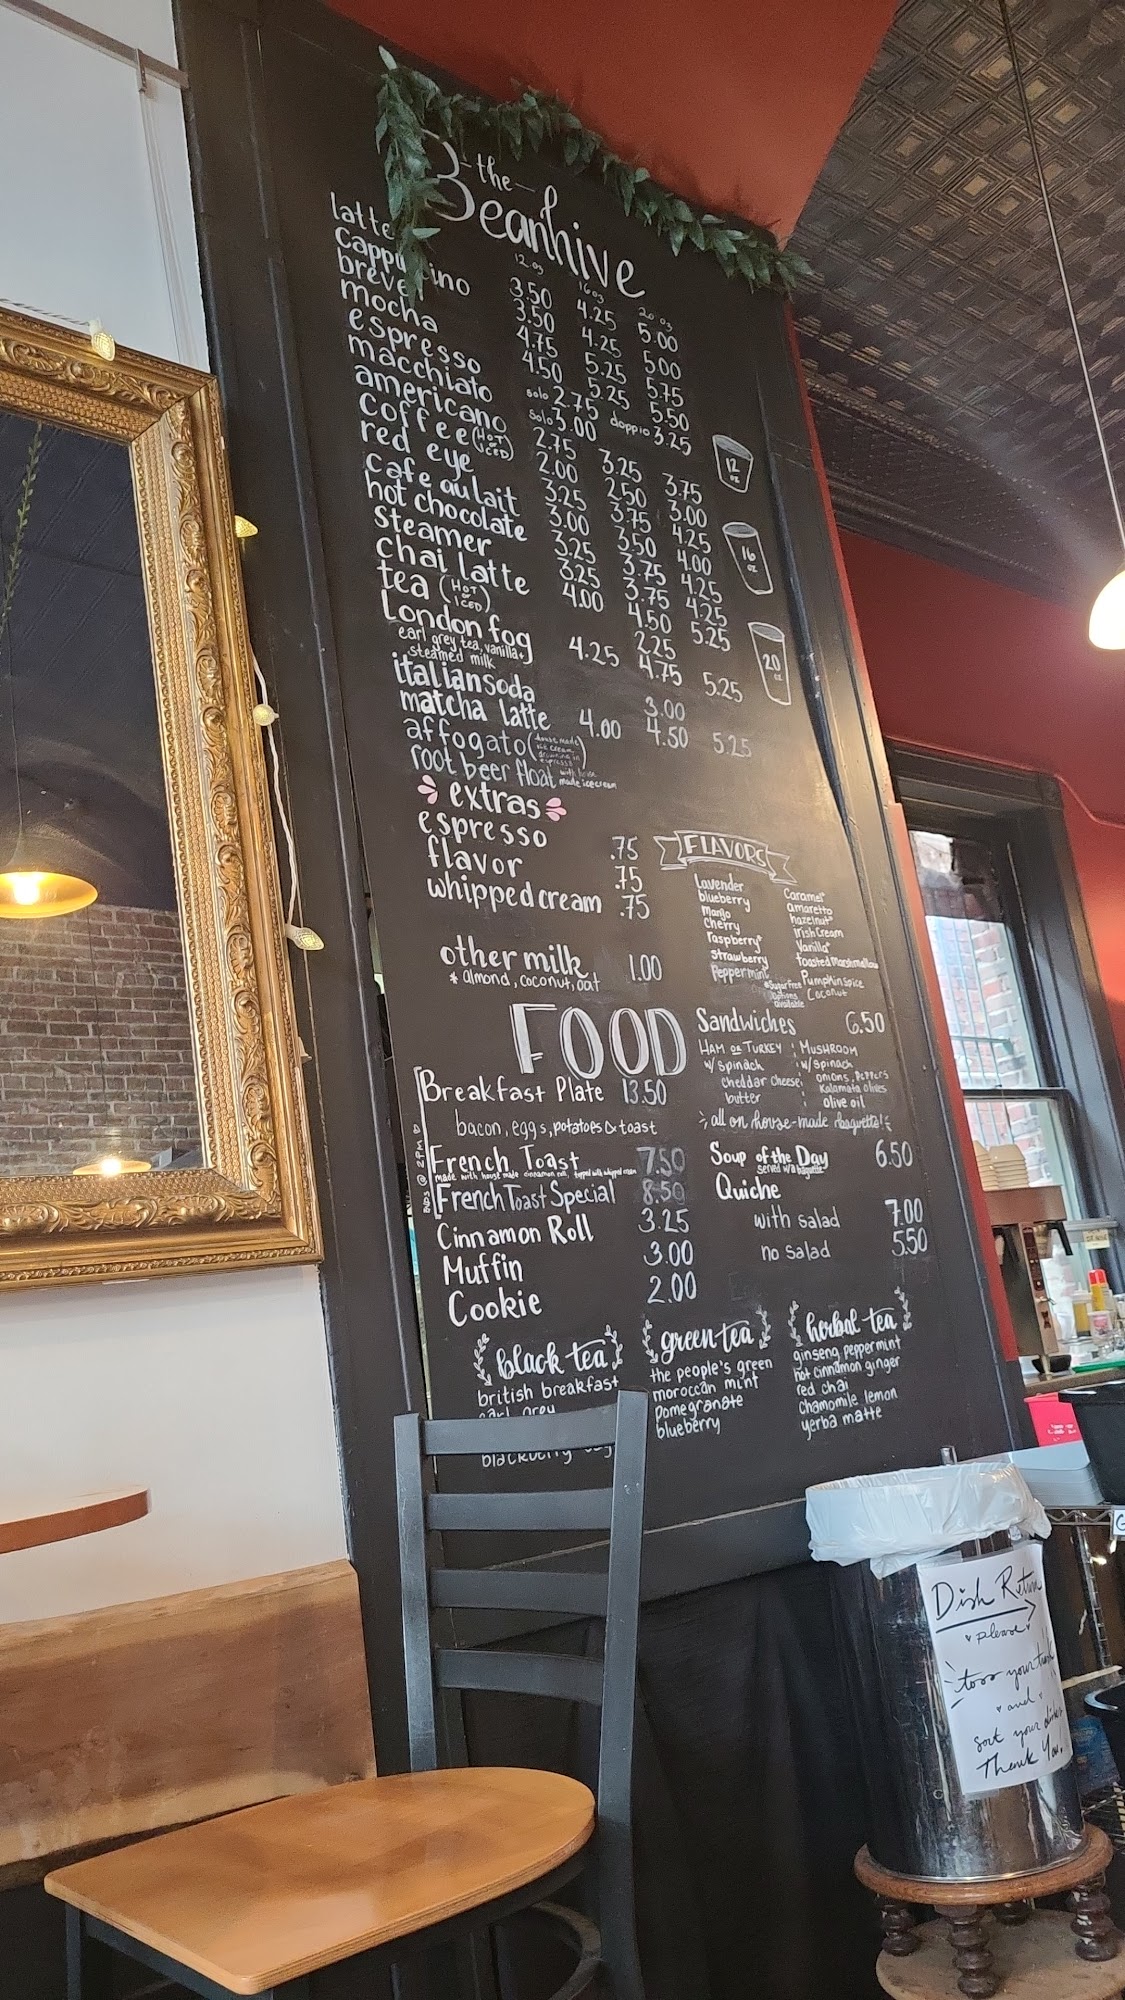 the
Beanhive
12 oz 16 oz 20 oz
latte 3.50 4.25 5.00
cappuccino 3.50 4.25 5.00
breve 4.75 5.25 5.75
mocha 4.50 5.25 5.50
espresso solo 2.75 doppio 3.25
macchiato solo 3.00
americano 2.75 3.25 3.75
coffee (HOT or ICED) 2.00 2.50 3.00
red eye 3.25 3.75 4.25
cafe au lait 3.00 3.50 4.00
hot chocolate 3.25 3.75 4.25
steamer 3.25 3.75 4.25
chai latte 4.00 4.50 5.25
tea (HOT or ICED) 2.25
London fog 4.25 4.75 5.25
earl grey tea, vanilla +
steamed milk
italian soda 3.00
matcha latte 4.00 4.50 5.25
affogato (house made ice cream drowned in espresso)
root beer float with house made ice cream
12 oz
16 oz
20 oz
extras
espresso .75
flavor .75
whipped cream .75
other milk 1.00
* almond, coconut, oat
FLAVORS
Lavender
blueberry
Mango
Cherry
raspberry*
Strawberry
Peppermint
Caramel*
amaretto
hazelnut*
Irish Cream
Vanilla*
toasted marshmallow
Pumpkin spice
Coconut
*Sugar free
options
available
FOOD
Breakfast Plate 13.50
bacon, eggs, potatoes & toast
French Toast 7.50
made with house made cinnamon roll, topped with whipped cream
French Toast Special 8.50
ENDS @ 2PM
Cinnamon Roll 3.25
Muffin 3.00
Cookie 2.00
Sandwiches 6.50
HAM OR TURKEY
w/ spinach
cheddar cheese
butter
MUSHROOM
w/ spinach
onions, peppers
Kalamata olives
olive oil
all on house-made baguette!
Soup of the Day 6.50
served w/ a baguette
Quiche
with salad 7.00
no salad 5.50
black tea
british breakfast
earl grey
blackberry
green tea
the people's green
moroccan mint
pomegranate
blueberry
herbal tea
ginseng peppermint
hot cinnamon ginger
red chai
chamomile lemon
yerba matte
Dish Return
please
toss your trash
and
sort your dishes
Thank You.